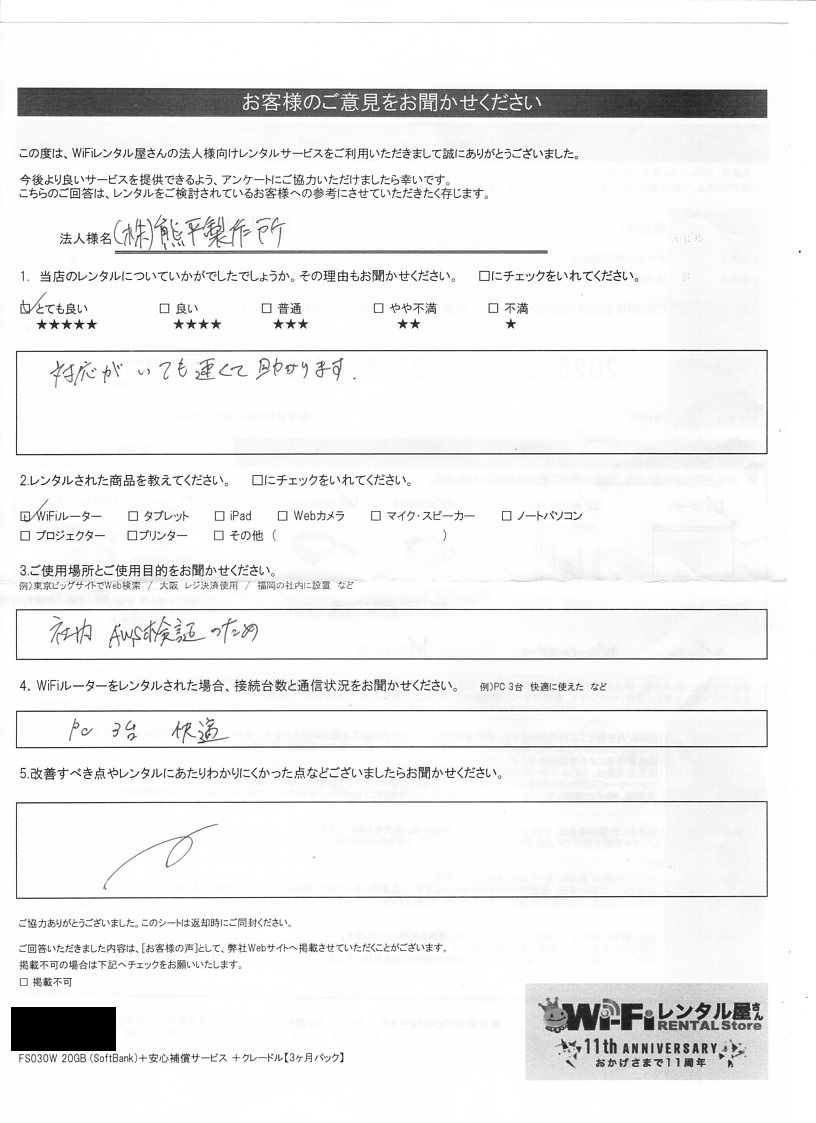 お客様のご意見をお聞かせください
この度は、WiFiレンタル屋さんの法人様向けレンタルサービスをご利用いただきまして誠にありがとうございました。
今後より良いサービスを提供できるよう、アンケートにご協力いただけましたら幸いです。
こちらのご回答は、レンタルをご検討されているお客様への参考にさせていただきたく存じます。
法人様名 (株)熊平製作所
1. 当店のレンタルについていかがでしたでしょうか。その理由もお聞かせください。 □にチェックをいれてください。
☑とても良い □ 良い □ 普通 □ やや不満 □ 不満
★★★★★ ★★★★ ★★★ ★★ ★
対応がいても速くて助かります.
2.レンタルされた商品を教えてください。 □にチェックをいれてください。
☑WiFiルーター □ タブレット □ iPad □ Webカメラ □ マイク・スピーカー □ ノートパソコン
□ プロジェクター □プリンター □ その他 ( )
3.ご使用場所とご使用目的をお聞かせください。
例)東京ビッグサイトでWeb検索 / 大阪 レジ決済使用 / 福岡の社内に設置 など
社内 AWS検証のため
4. WiFiルーターをレンタルされた場合、接続台数と通信状況をお聞かせください。 例)PC 3台 快適に使えた など
PC 3台 快適
5.改善すべき点やレンタルにあたりわかりにくかった点などございましたらお聞かせください。
ご協力ありがとうございました。このシートは返却時にご同封ください。
ご回答いただきました内容は、[お客様の声]として、弊社Webサイトへ掲載させていただくことがございます。
掲載不可の場合は下記へチェックをお願いいたします。
□ 掲載不可
Wi-Fiレンタル屋さん
RENTAL Store
11th ANNIVERSARY
おかげさまで11周年
FS030W 20GB (SoftBank)＋安心補償サービス ＋クレードル【3ヶ月パック】